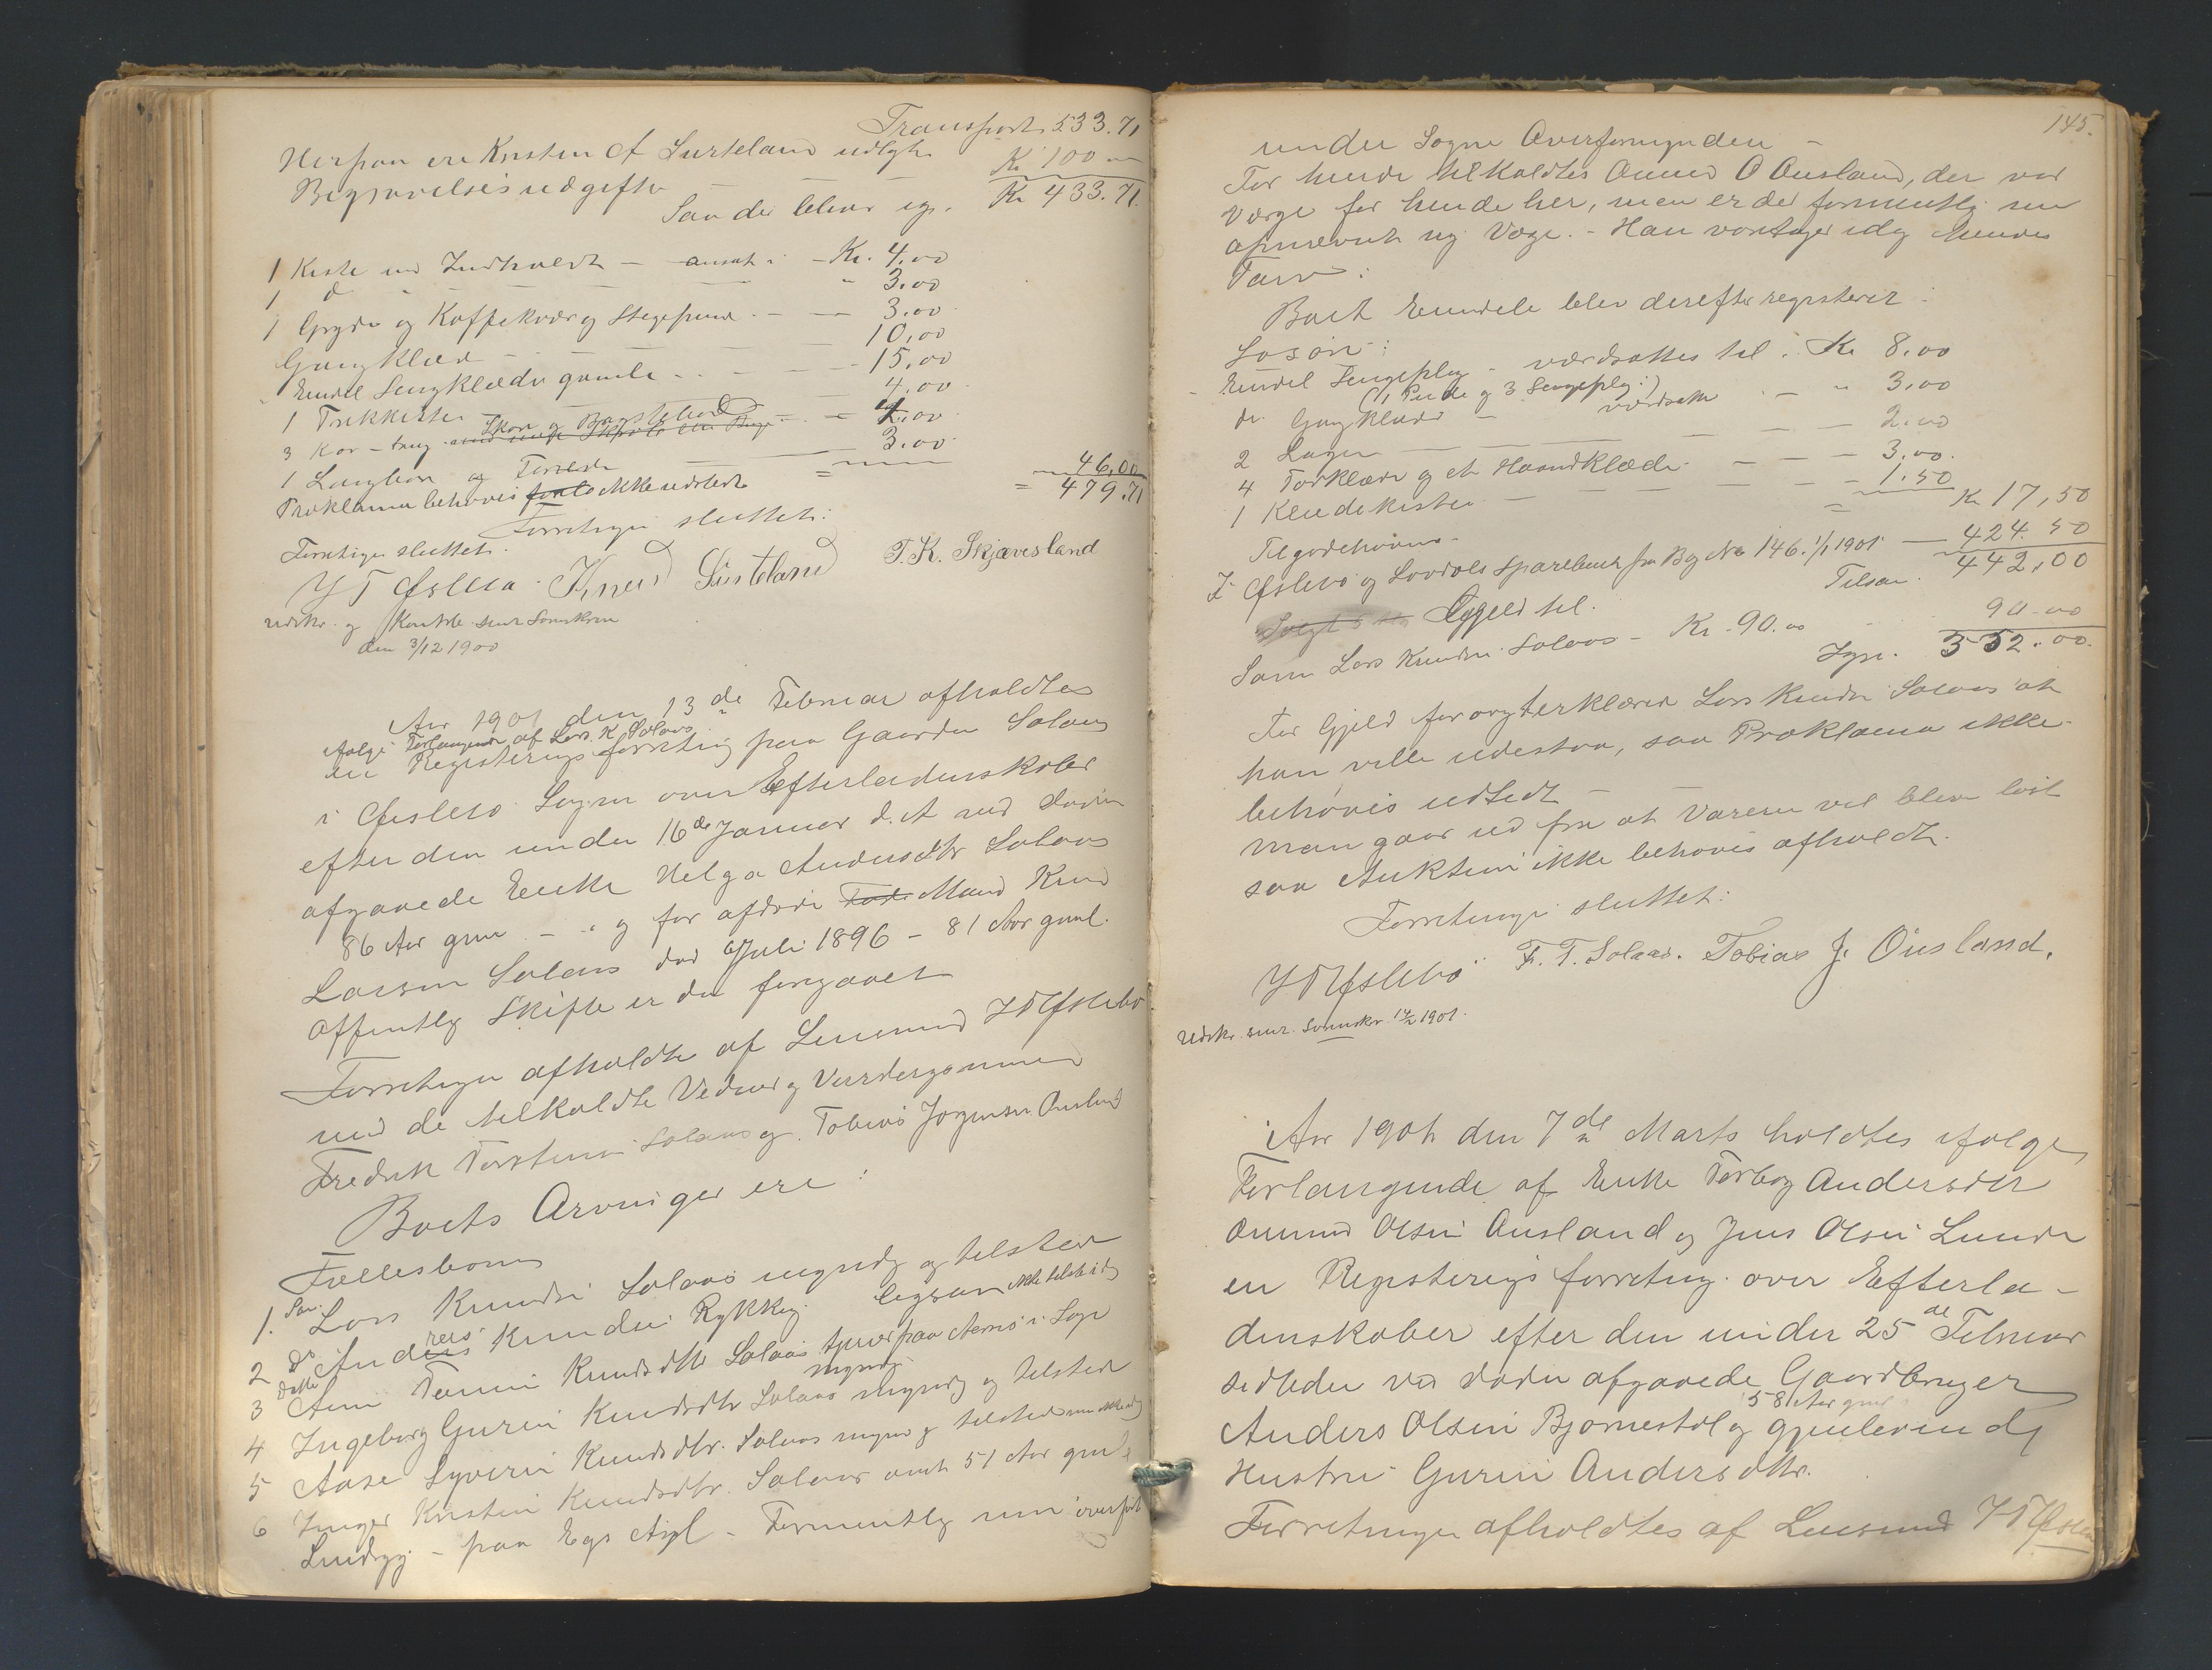 Transport 533.71
Herfra er Kristen A Surteland udlagt
Kr 100 -
Begravelsesudgifter
Saa der bliver igj. Kr 433.71.
1 Kiste med Indhold - ansat i - Kr. 4.00
1 do - 3.00
1 Gryde og Kaffekværn og Stegepande - 3.00
Gangklæder - 10,00
Endel Sengklæder gamle - 15,00
1 Trekkiste 4,00
3 Kar - trug Skore og Bagstebord 4.00
1 Langbenk og 3.00
46,00
Proklama behøves ikke udstedt = 479.71
Forretningen sluttet:
Forretningen sluttet.
Y T Øfslebø Knud Surteland T. K. Skjævesland
Udskr. og sendt Sorenskr.
den 3/12 1900
Aar 1901 den 13de Februar afholdtes
ifølge Forlangende af Lars K. Solaas
en Registreringsforretning paa Gaarden Solaas
i Øfslebø Sogn over Efterladenskaber
efter den under 16de Januar d. A ved Døden
afgaaede Enke Helga Andersdtr Solaas
86 Aar gml - og før afdøde Mand Knud
Larsen Solaas død 6 Juli 1896 - 81 Aar gml.
Offentlig Skifte er da foregaaet
Forretningen afholdtes af Lensmand Y T Øfslebø
med de tilkaldte Vidner og Vurderingsmænd
Fredrik Torstensen Solaas og Tobias Jørgensen Ousland
Boets Arvinger ere:
Fællesbørn
1. Søn. Lars Knudsen Solaas myndig og tilstede
2 do Anders Knudsen Rykkej. ligesaa ikke tilstede idag
3 Datter Ann Tomine Knudsdtr Solaas tjener paa i Sogn
myndig
4 Ingeborg Gurine Knudsdtr Solaas myndig og tilstede
5 Aase Syverine Knudsdtr. Solaas myndig og tilstede
6 Inger Kristine Knudsdtr. Solaas omt 51 Aar gml
Sindsyg - paa Egs Asyl - Formentlig nu overført
145.
under Sogne Overformynderi -
For hende tilkaldtes Aanund O Ousland, der var
Værge for hende her, men er der formentlig nu
opnævnt ny Værge. - Han varetager idag hendes
Tarv:
Boets Eiendele blev derefter registreret:
Løsøre:
Endel Sengeplag - værdsattes til: Kr 8.00
(1 Pude og 3 Sengeplag:)
do Gangklæder - værdsatte - 3.00
2 Lagen - 2.00
4 Tørklæder og et Haandklæde - 3.00.
1 Klædekiste - 1.50
= Kr 17,50
Tilgodehavende -
I Øfslebø og Laudals Sparebank fra Bog No 146. 1/1 1901 - 424.50
Tilsam. 442,00
Gjæld til.
Søn Lars Knudsen Solaas - Kr. 90.00 90.00
Igjen. 352.00.
For Gjæld forøvrigt erklærer Lars Knudsen Solaas at
han ville indestaa, saa Proklama ikke
behøves udstedt -
Man gaar ud fra at Varerne vel bliver løst
saa Auktion ikke behøves afholdt.
Forretningen sluttet:
Y T Øfslebø F. T. Solaas. Tobias J. Ousland.
Udskr. sendt Sorenskr. 14/2 1901.
Aar 1901 den 7de Marts holdtes ifølge
Forlangende af Enke Torborg Andersdtr
Aanund Olsen Ousland og Jens Olsen Lunde
en Registreringsforretning over Efterla-
denskaber efter den under 25de Februar
sidstleden ved Døden afgaaede Gaardbruger
58 Aar gml
Anders Olsen Bjørnestøl og gjenlevende
Hustru Gurine Andersdtr.
Forretningen afholdtes af Lensmand Y T Øfslebø